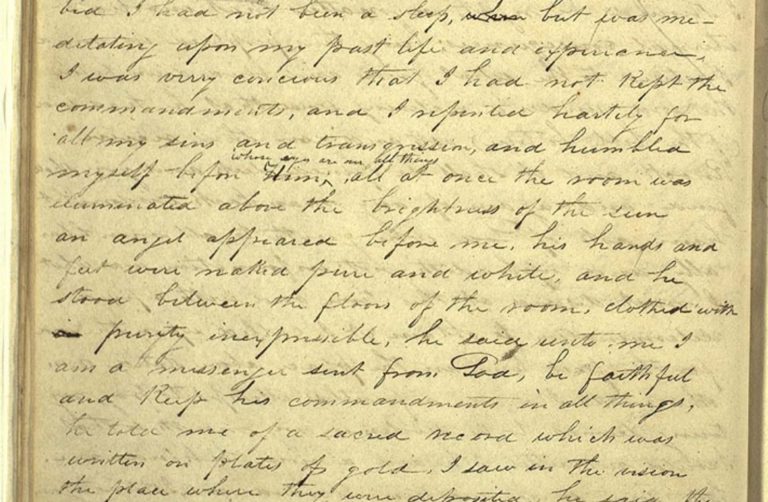 bid I had not been a sleep, but was me-
ditating upon my past life and experience,
I was very concious that I had not kept the
commandments, and I repented hartily for
all my sins and transgression, and humbled
whose eyes are over all things
myself before Him; all at once the room was
iluminated above the brightness of the sun
an angel appeared before me, his hands and
feet were naked pure and white, and he
stood between the floors of the room, clothed with
purity inexpressible, he said unto me I
am a messenger sent from God, be faithful
and keep his commandments in all things,
he told me of a sacred record which was
written on plates of gold, I saw in the vision
the place where they were deposited, he said the